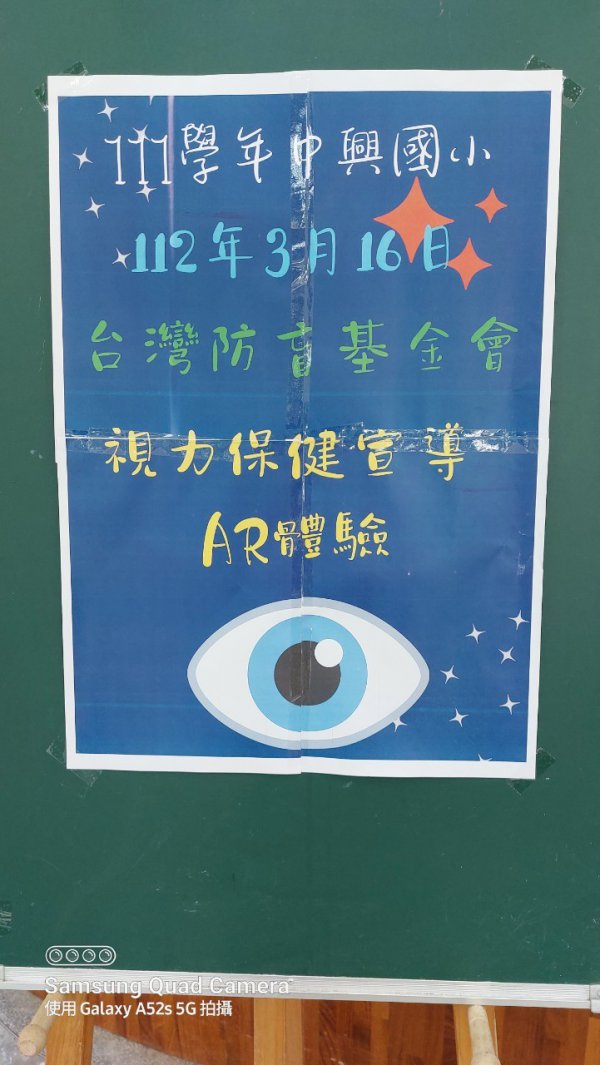 111學年中興國小
112年3月16日
台灣防盲基金會
視力保健宣導
AR體驗
Samsung Quad Camera
使用 Galaxy A52s 5G 拍攝